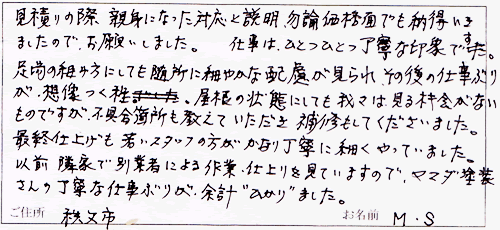 見積りの際、親身になった対応と説明、勿論価格面でも納得いき
ましたので、お願いしました。 仕事は、ひとつひとつ丁寧な印象でした。
足場の組み方にしても随所に細やかな配慮が見られ、その後の仕事ぶり
が、想像つく程でした。屋根の状態にしても我々は見る機会がない
ものですが、不具合箇所も教えていただき補修もしてくださいました。
最終仕上げも若いスタッフの方がかなり丁寧に細くやっていました。
以前隣家で別業者による作業、仕上りを見ていますので、ヤマダ塗装
さんの丁寧な仕事ぶりが、余計"ひかり"ました。
ご住所 秩父市 お名前 M・S